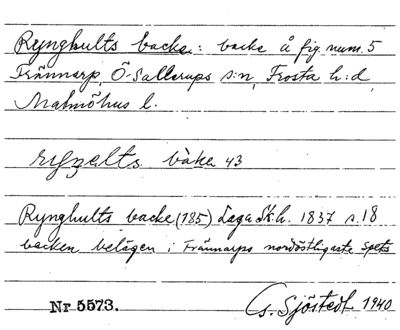 Rynghults backe: backe å fig. num. 5
Trännarp, Ö-Sallerups s:n, Frosta h:d,
Malmöhus l.
bàka 43
Rynghults backe (185) Laga Sk.h. 1837 s.18
backen belägen i Trännarps nordöstligaste spets
Nr 5573.
G. Sjöstedt 1940